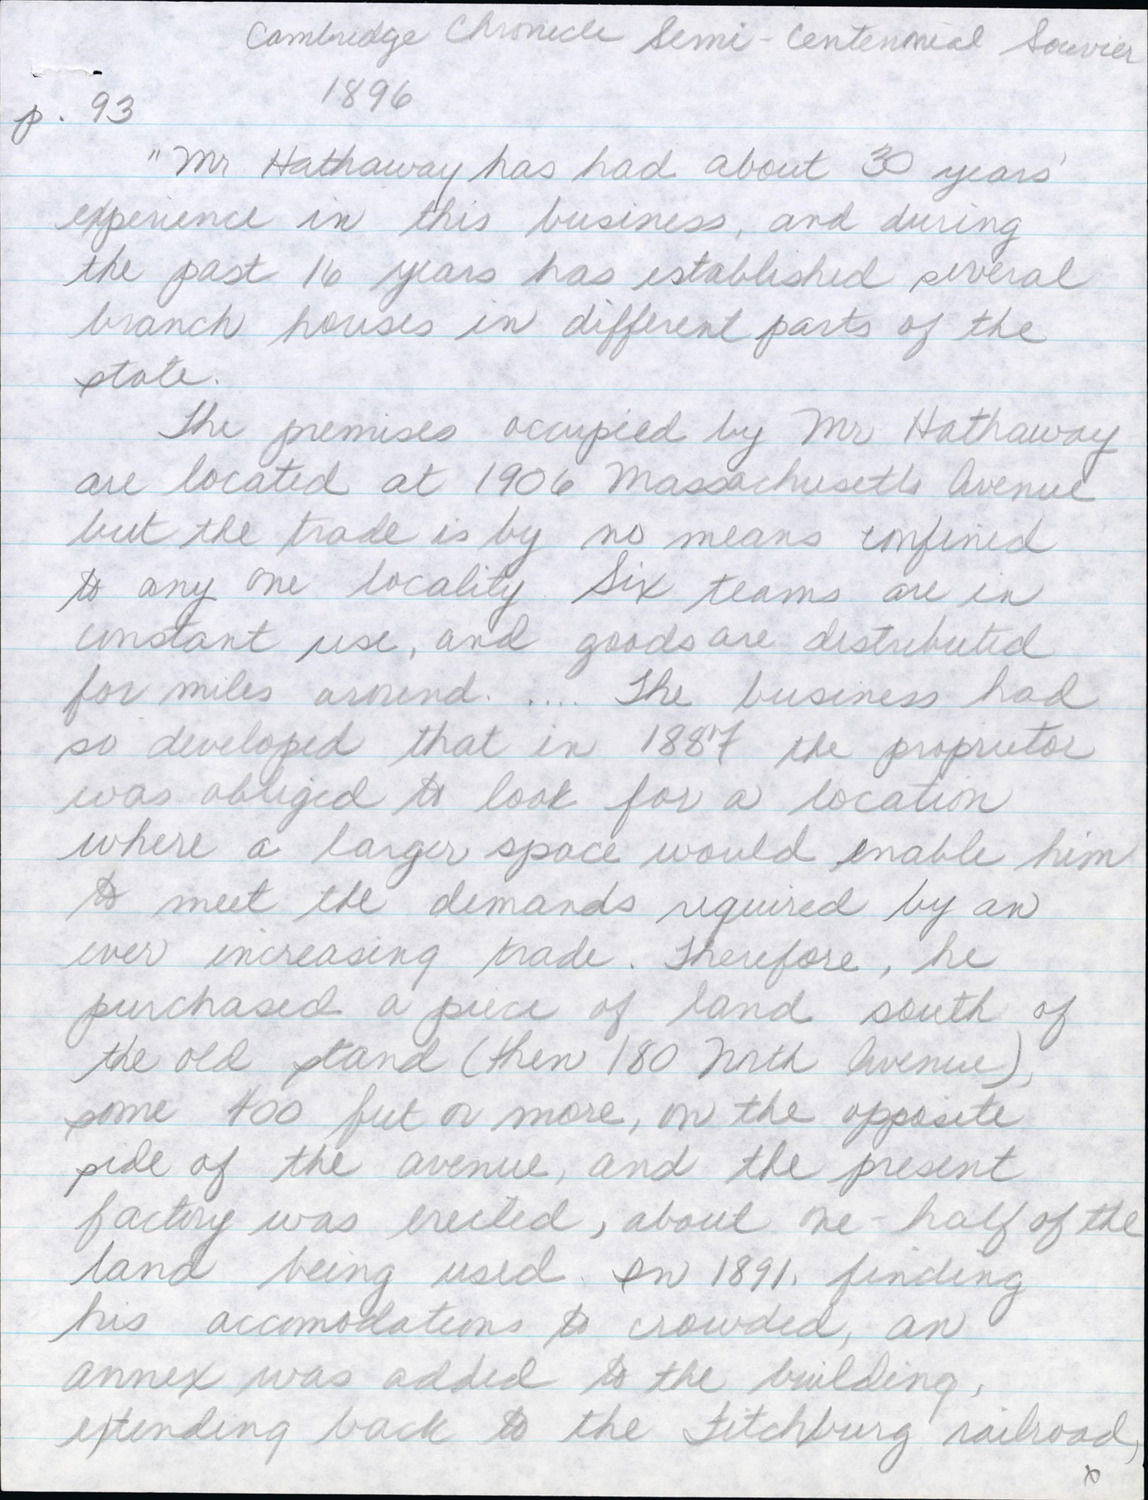 Cambridge Chronicle Semi-Centennial Souvier
1896
p. 93
"Mr Hathaway has had about 30 years'
experience in this business, and during
the past 16 years has established several
branch houses in different parts of the
state.
The premises occupied by Mr Hathaway
are located at 1906 Massachusetts Avenue
but the trade is by no means confined
to any one locality. Six teams are in
constant use, and goods are distributed
for miles around. .... The business had
so developed that in 1887 the proprietor
was obliged to look for a location
where a larger space would enable him
to meet the demands required by an
ever increasing trade. Therefore, he
purchased a piece of land south of
the old stand (then 180 North Avenue),
some 400 feet or more, on the opposite
side of the avenue, and the present
factory was erected, about one-half of the
land being used. In 1891, finding
his accomodations to crowded, an
annex was added to the building,
extending back to the Fitchburg railroad,